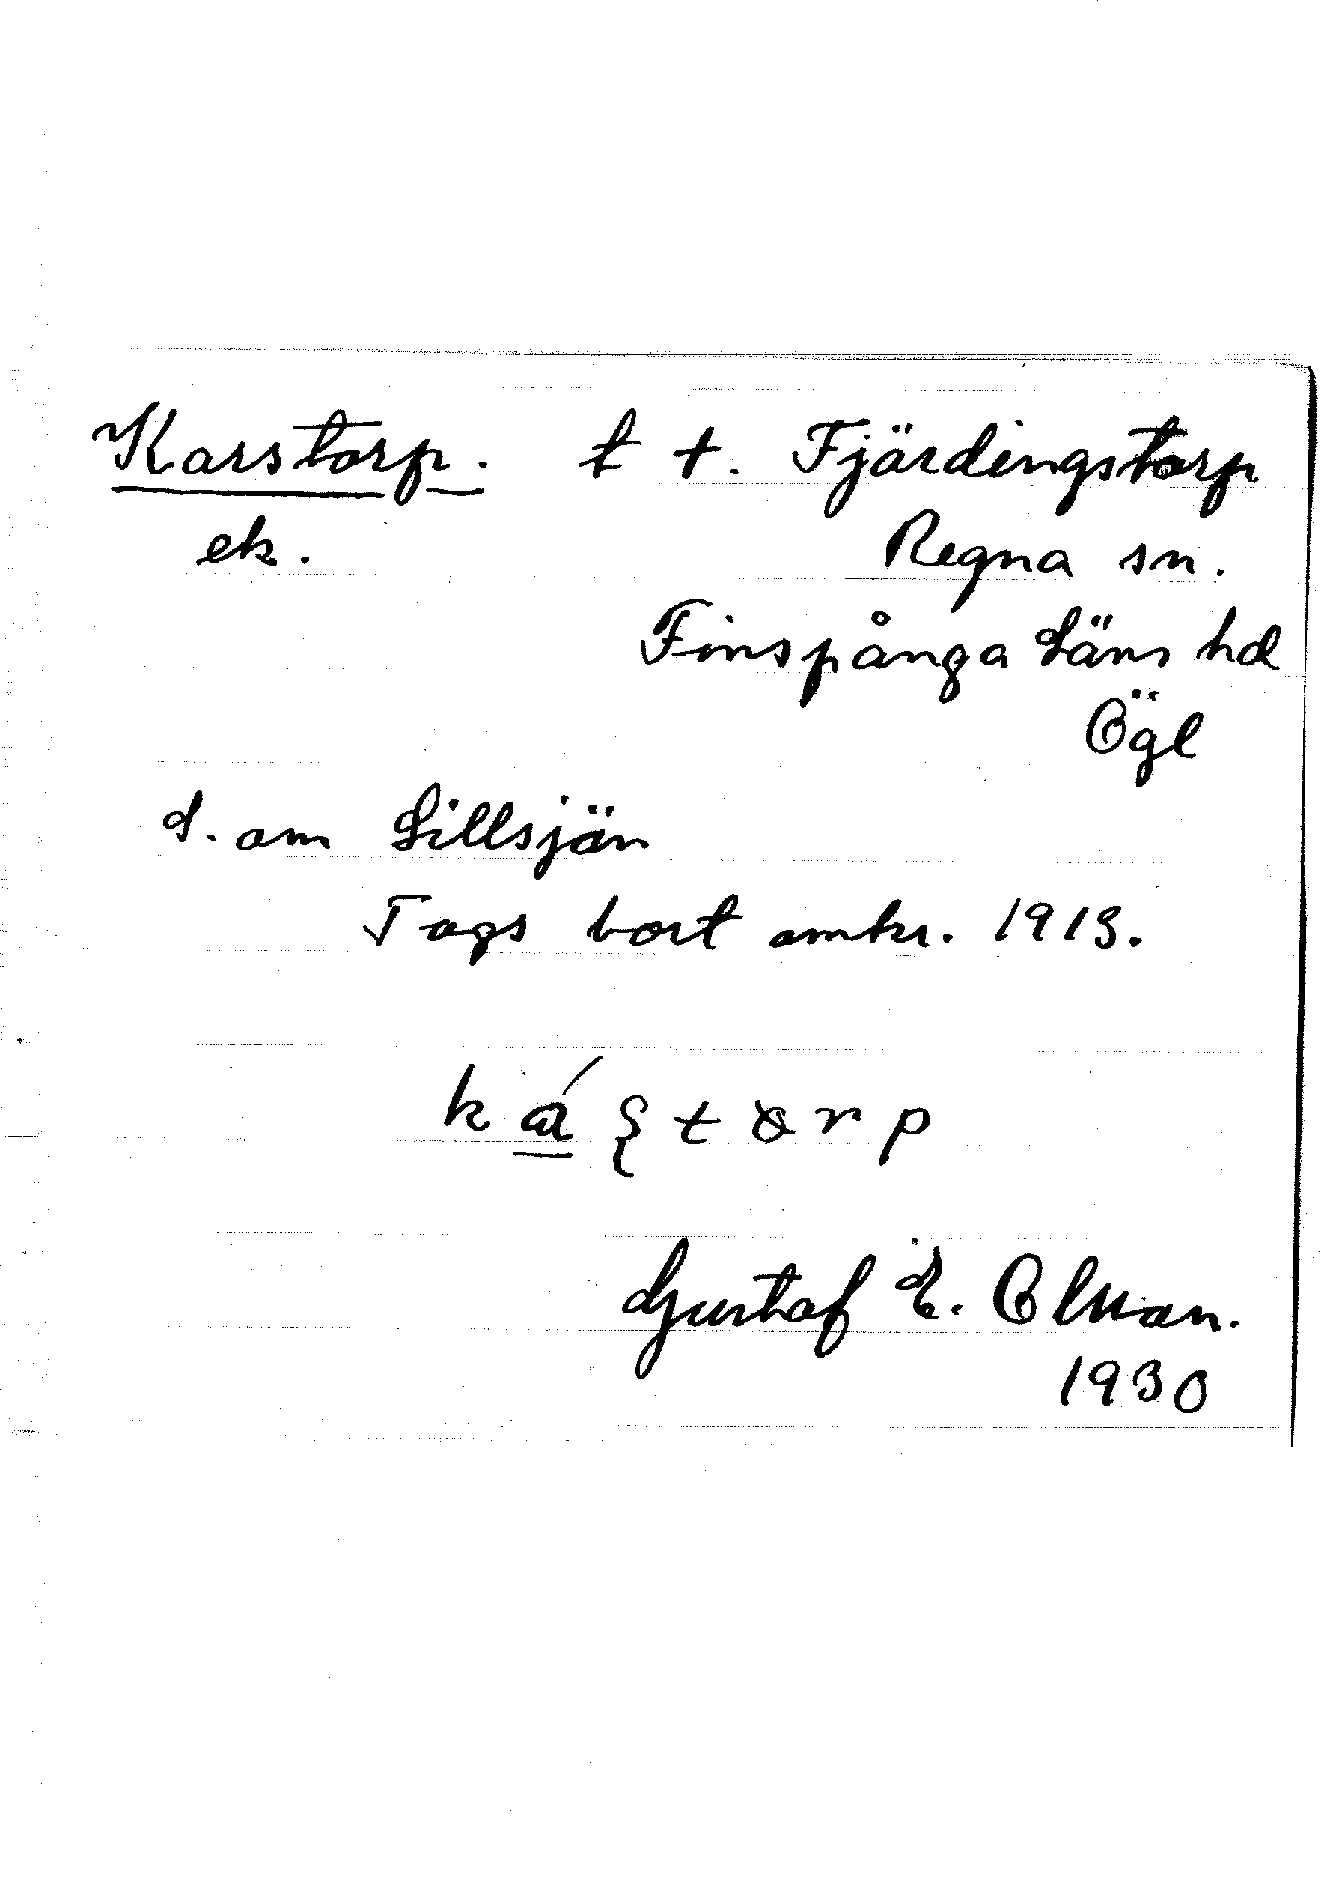 Karstorp. t t. Fjärdingstorp
ek. Regna sn.
Finspånga Läns hd
Ögl
S. om Lillsjön
Togs bort omkr. 1913.
Gustaf E. Olsson.
1930